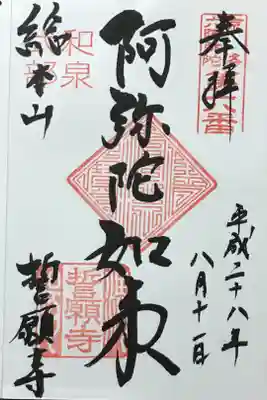 奉拝
平成二十八年
八月十一日
阿弥陀如来
総本山
誓願寺
和泉
式部
誓願寺